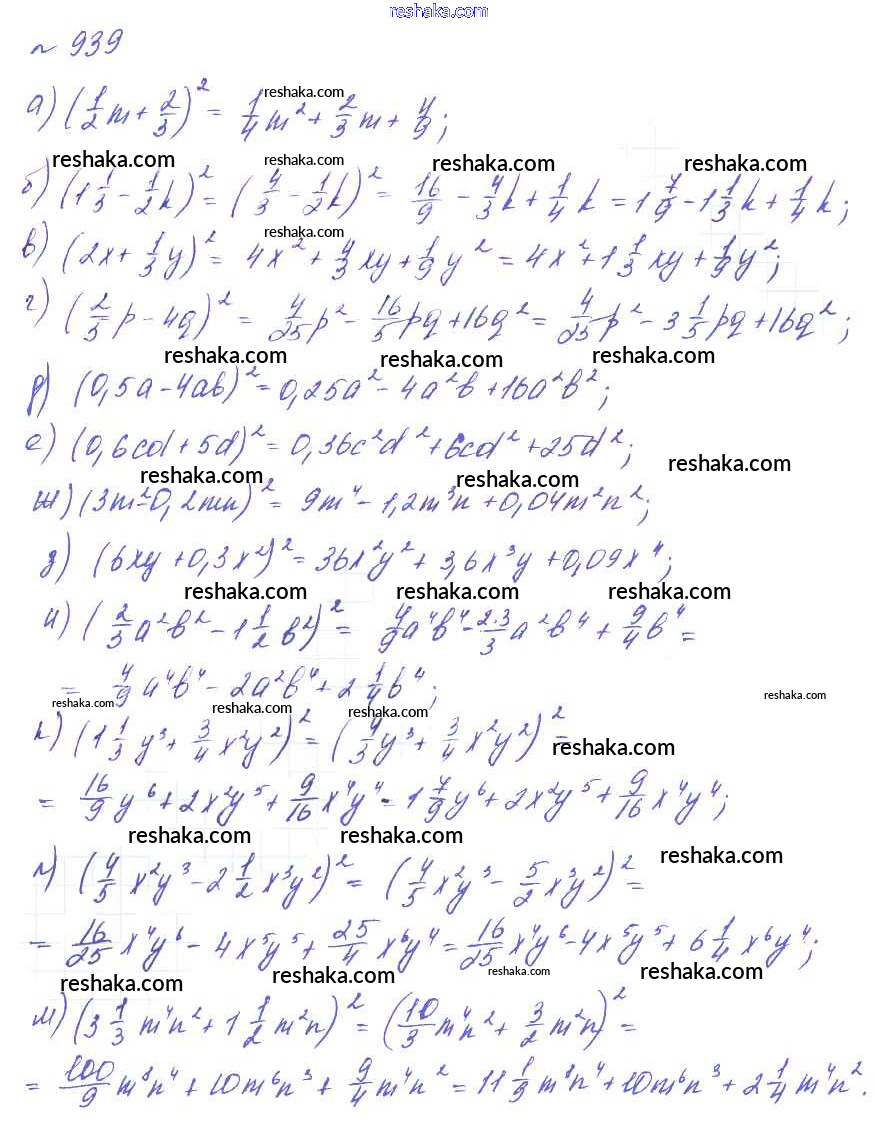 reshaka.com
№ 939
reshaka.com
а) (1/2 m + 2/3)² = 1/4 m² + 2/3 m + 4/9;
reshaka.com reshaka.com reshaka.com reshaka.com
б) (1 1/3 - 1/2 k)² = (4/3 - 1/2 k)² = 16/9 - 4/3 k + 1/4 k = 1 7/9 - 1 1/3 k + 1/4 k;
reshaka.com
в) (2x + 1/3 y)² = 4x² + 4/3 xy + 1/9 y² = 4x² + 1 1/3 xy + 1/9 y²;
г) (2/5 p - 4q)² = 4/25 p² - 16/5 pq + 16q² = 4/25 p² - 3 1/5 pq + 16q²;
reshaka.com reshaka.com reshaka.com
д) (0,5a - 4ab)² = 0,25a² - 4a²b + 16a²b²;
е) (0,6cd + 5d)² = 0,36c²d² + 6cd² + 25d²;
reshaka.com reshaka.com reshaka.com
ж) (3m² - 0,2mn)² = 9m⁴ - 1,2m³n + 0,04m²n²;
з) (6xy + 0,3x²)² = 36x²y² + 3,6x³y + 0,09x⁴;
reshaka.com reshaka.com reshaka.com
и) (2/3 a²b² - 1 1/2 b²)² = 4/9 a⁴b⁴ - 2·3/3 a²b⁴ + 9/4 b⁴ =
= 4/9 a⁴b⁴ - 2a²b⁴ + 2 1/4 b⁴;
reshaka.com reshaka.com reshaka.com reshaka.com
к) (1 1/3 y³ + 3/4 x²y²)² = (4/3 y³ + 3/4 x²y²)² =
reshaka.com
= 16/9 y⁶ + 2x²y⁵ + 9/16 x⁴y⁴ = 1 7/9 y⁶ + 2x²y⁵ + 9/16 x⁴y⁴;
reshaka.com reshaka.com reshaka.com
л) (4/5 x²y³ - 2 1/2 x³y²)² = (4/5 x²y³ - 5/2 x³y²)² =
= 16/25 x⁴y⁶ - 4x⁵y⁵ + 25/4 x⁶y⁴ = 16/25 x⁴y⁶ - 4x⁵y⁵ + 6 1/4 x⁶y⁴;
reshaka.com reshaka.com reshaka.com reshaka.com
м) (3 1/3 m⁴n² + 1 1/2 m²n)² = (10/3 m⁴n² + 3/2 m²n)² =
= 100/9 m⁸n⁴ + 10m⁶n³ + 9/4 m⁴n² = 11 1/9 m⁸n⁴ + 10m⁶n³ + 2 1/4 m⁴n².